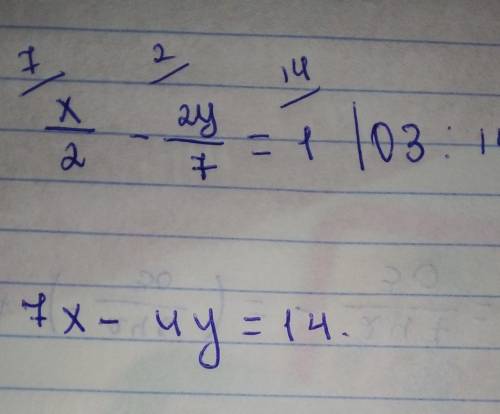 7 2 14
x/2 - 2y/7 = 1 | ОЗ:
7x - 4y = 14.